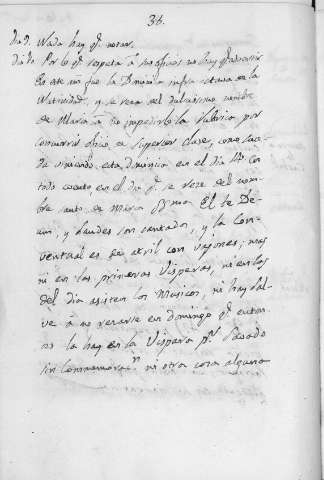 36.
dia 9. Nada hay q.e notar.
dia 10. Por lo q.e respeta à los oficios no hay q.e advertir
En este mes fue la Dominica infra octava de la
Natividad, y se reza del dulcisimo nombre
de Maria à no impedirlo la rubrica por
concurrir oficio de superior clase, como suce-
de viniendo esta dominica en el dia 14. Con
todo cuanto en el dia q.e se reze del nom-
bre santo de Maria SSma El te De-
um, y laudes son cantados, y la Con-
ventual es de atril con vajones; mas
ni en las primeras Visperas, ni en las
del dia asisten los Musicos, ni hay Sal-
ve à no rezarse en domingo q.e enton-
ces la hay en la Vispera p.r Sabado
sin Conmemorac.n ni otra cosa alguna